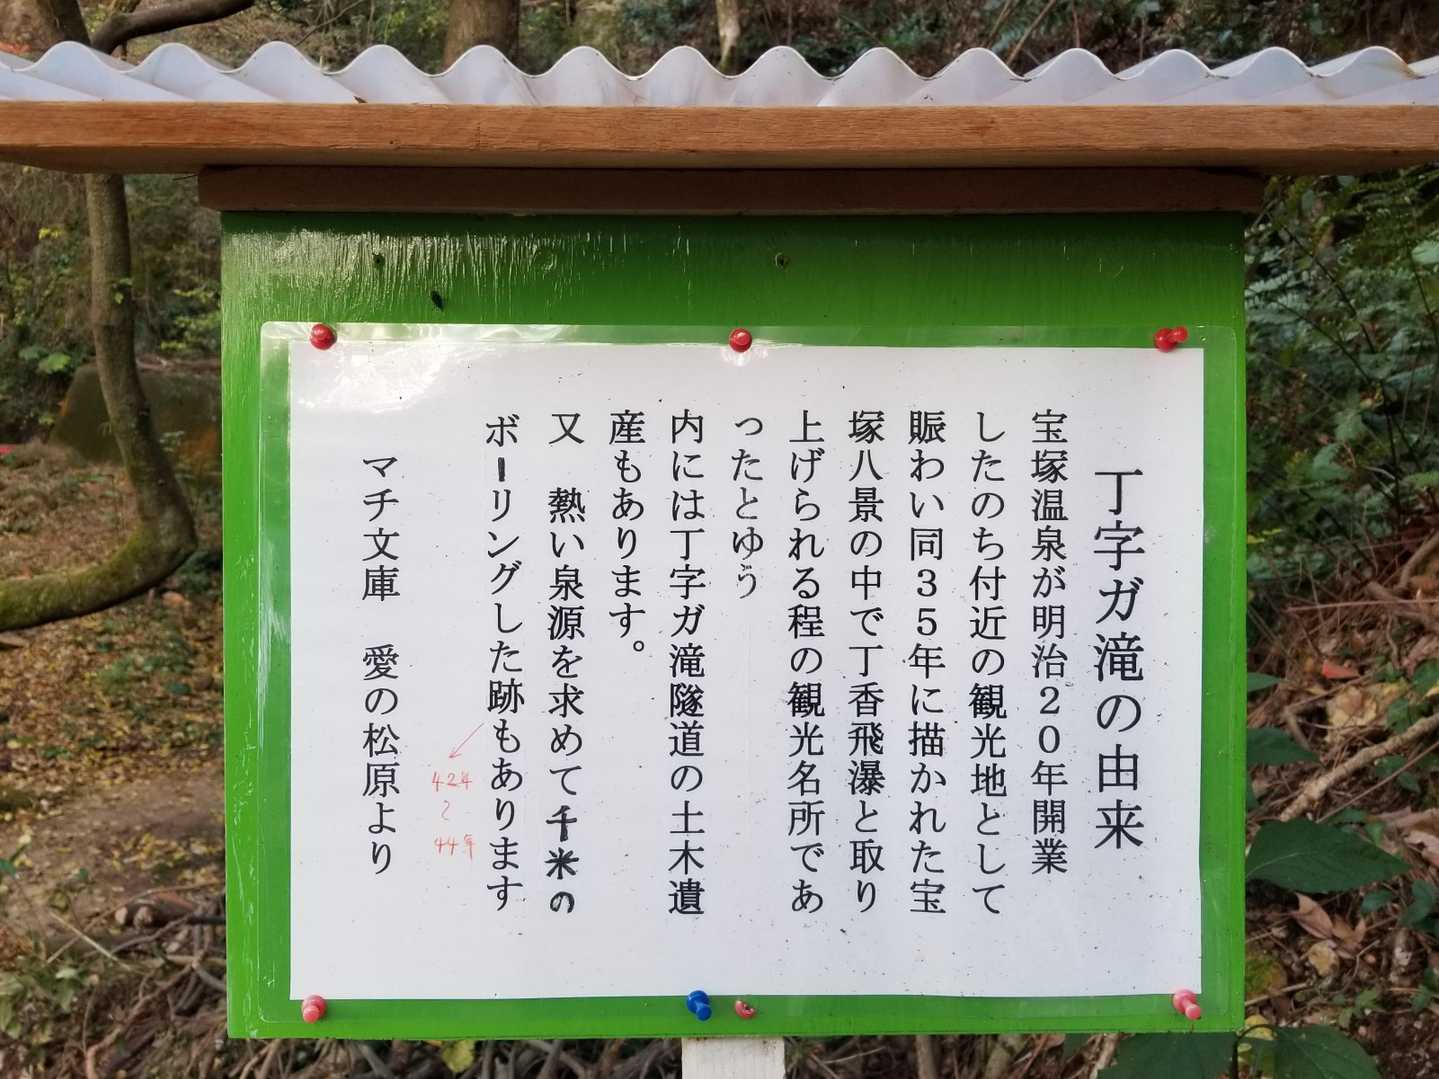 丁字ガ滝の由来
宝塚温泉が明治２０年開業
したのち付近の観光地として
賑わい同３５年に描かれた宝
塚八景の中で丁香飛瀑と取り
上げられる程の観光名所であ
ったとゆう
内には丁字ガ滝隧道の土木遺
産もあります。
又　熱い泉源を求めて千米の
ボーリングした跡もあります
42年
～
44年
マチ文庫　愛の松原より